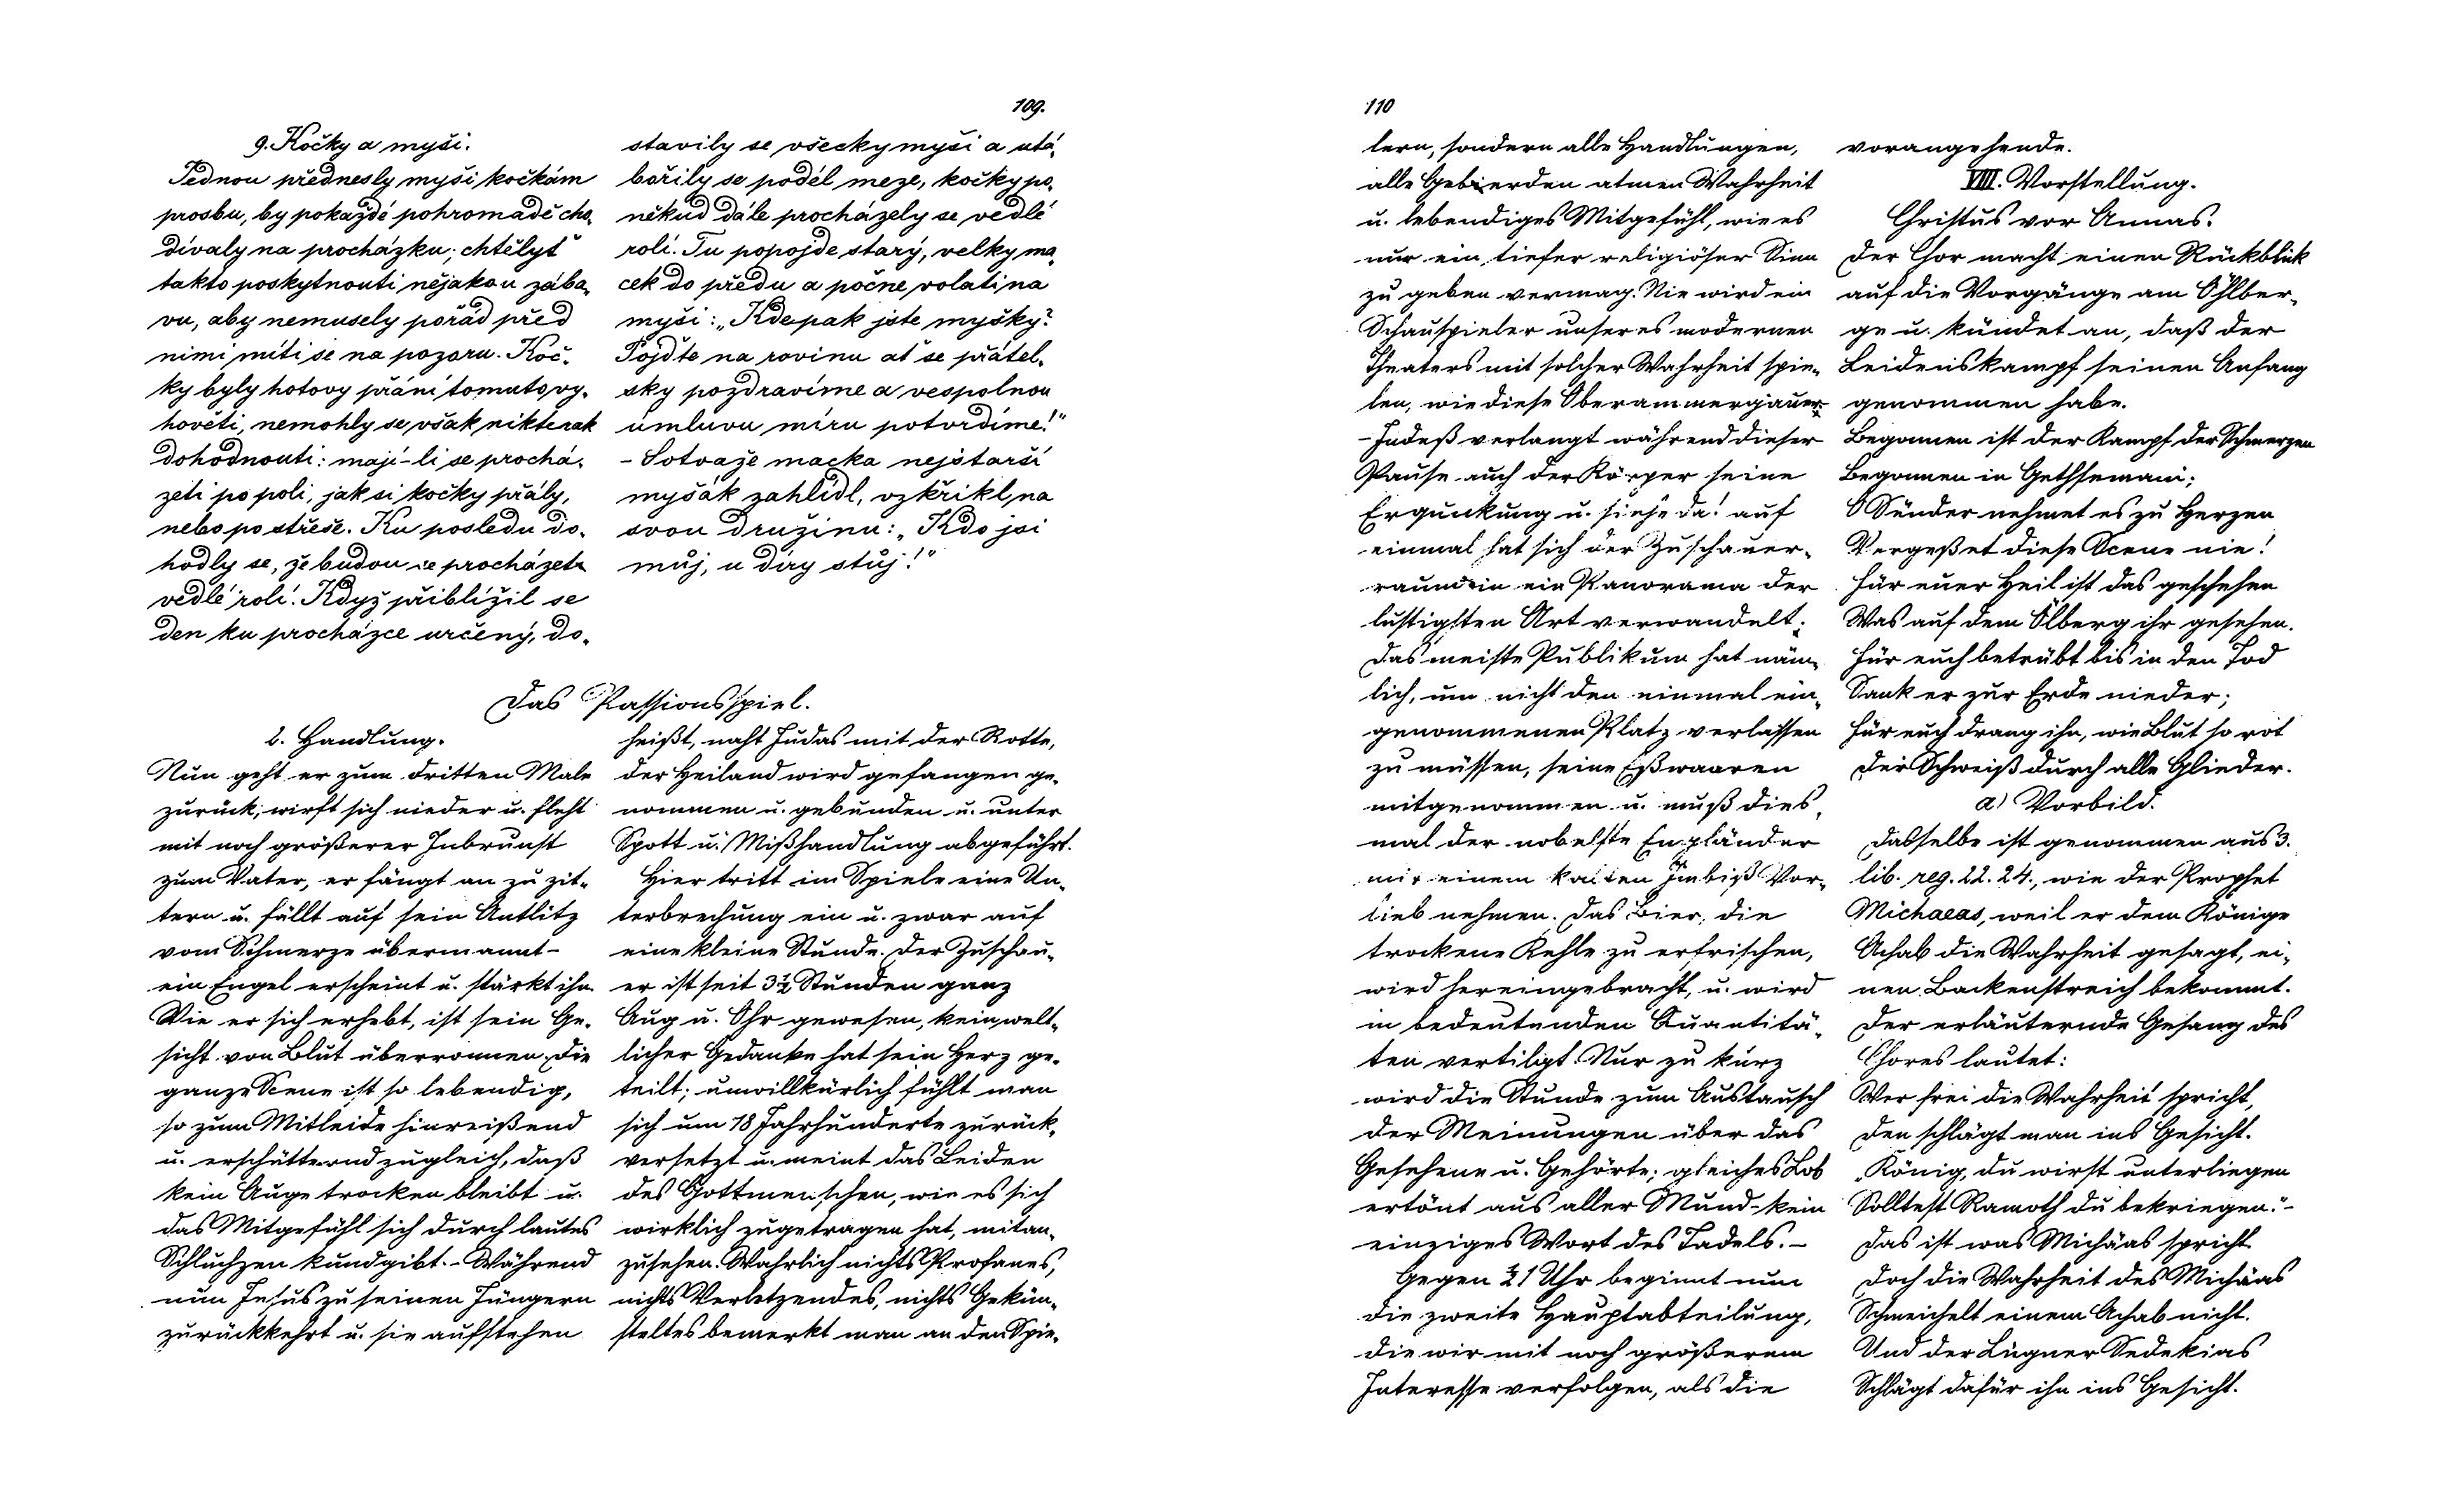 109.
9. Kočky a myši.
Jednou přednesly myši kočkám
prosbu, by pokaždé pohromadě cho-
dívaly na procházku; chtělyť
takto poskytnouti nějakou zába-
vu, aby nemusely pořád před
nimi míti se na pozoru. Koč-
ky byly hotovy přání tomuto vy-
hověti, nemohly se však nikterak
dohodnouti: mají-li se prochá-
zeti po poli, jak si kočky přály,
nebo po střeše. Ku posledu do-
hodly se, že budou se procházeti
vedlé rolí. Když přiblížil se
den ku procházce určený, do-
stavily se všecky myši a utá-
bořily se podél meze, kočky po-
někud dále procházely se vedlé
rolí. Tu popojde starý, velky ma-
cek do předu a počne volati na
myši: „Kdepak jste myšky?
Pojďte na rovinu ať se přátel-
sky pozdravíme a vespolnou
úmluvu míru potvrdíme!"
- Sotvaže macka nejstarší
myšák zahlídl, vzkřikl na
svou družinu: „Kdo jsi
můj, u díry stůj!"
Das Passionsspiel.
b. Handlung.
Nun geht er zum dritten Male
zurück, wirft sich nieder u. fleht
mit noch größerer Inbrunst
zum Vater, er fängt an zu zit-
tern u. fällt auf sein Antlitz
vom Schmerze übermannt-
ein Engel erscheint u. stärkt ihn.
Wie er sich erhebt, ist sein Ge-
sicht von Blut überronnen, die
ganze Scene ist so lebendig,
so zum Mitleide hinreißend
u. erschütternd zugleich, daß
kein Auge trocken bleibt u.
das Mitgefühl sich durch lautes
Schluchzen kundgibt. - Während
nun Jesus zu seinen Jüngern
zurückkehrt u. sie aufstehen
heißt, naht Judas mit der Rotte,
der Heiland wird gefangen ge-
nommen u. gebunden u. unter
Spott u. Mißhandlung abgeführt.
Hier tritt im Spiele eine Un-
terbrechung ein u. zwar auf
eine kleine Stunde. Der Zuschau-
er ist seit 3½ Stunden ganz
Aug u. Ohr gewesen, kein welt-
licher Gedanke hat sein Herz ge-
teilt; unwillkürlich fühlt man
sich um 18 Jahrhunderte zurück-
versetzt u. meint das Leiden
des Gottmenschen, wie es sich
wirklich zugetragen hat, mitan-
zusehen. Wahrlich nichts Profanes,
nichts Verletzendes, nichts Gekün-
steltes bemerkt man an den Spie-
110
lern, sondern alle Handlungen,
alle Gebierden atmen Wahrheit
u. lebendiges Mitgefühl, wie es
nur ein tiefer religiöser Sinn
zu geben vermag. Nie wird ein
Schauspieler unseres modernen
Theaters mit solcher Wahrheit spie-
len, wie diese Oberammergauer.
- Indeß verlangt während dieser
Pause auch der Körper seine
Erquickung u. siehe da! auf
einmal hat sich der Zuschauer-
raum in ein Panorama der
lustigsten Art verwandelt;
das meiste Publikum hat näm-
lich, um nicht den einmal ein-
genommenen Platz verlassen
zu müssen, seine Eßwaaren
mitgenommen u. muß dies-
mal der nobelste Engländer
mit einem kalten Imbiß Vor-
lieb nehmen. Das Bier, die
trockene Kehle zu erfrischen,
wird hereingebracht, u. wird
in bedeutenden Quantitä-
ten vertilgt. Nur zu kurz
wird die Stunde zum Austausch
der Meinungen über das
Gesehene u. Gehörte; gleiches Lob
ertönt aus aller Mund - kein
einziges Wort des Tadels. -
Gegen ½1 Uhr beginnt nun
die zweite Hauptabteilung,
die wir mit noch größerem
Interesse verfolgen, als die
vorangehende.
VIII. Vorstellung.
Christus vor Annas.
Der Chor macht einen Rückblick
auf die Vorgänge am Öhlber-
ge u. kündet an, daß der
Leidenskampf seinen Anfang
genommen habe.
Begonnen ist der Kampf der Schmerzen
Begonnen in Gethsemani;
O Sünder nehmet es zu Herzen
Vergeßet diese Scene nie!
Für euer Heil ist das geschehen
Was auf dem Ölberg ihr gesehen.
Für euch betrübt bis in den Tod
Sank er zur Erde nieder;
Für euch drang ihn, wie Blut so rot
Der Schweiß durch alle Glieder.
a) Vorbild.
Dasselbe ist genommen aus 3.
lib. reg. 22. 24., wie der Prophet
Michaeas, weil er dem Könige
Achab die Wahrheit gesagt, ei-
nen Backenstreich bekommt.
Der erläuternde Gesang des
Chores lautet:
Wer frei die Wahrheit spricht,
Den schlägt man ins Gesicht.
„König, du wirst unterliegen
Solltest Ramoth du bekriegen." -
Das ist was Michäas spricht
Doch die Wahrheit des Michäas
Schmeichelt einem Achab nicht.
Und der Lügner Sedekias
Schlägt dafür ihn ins Gesicht.